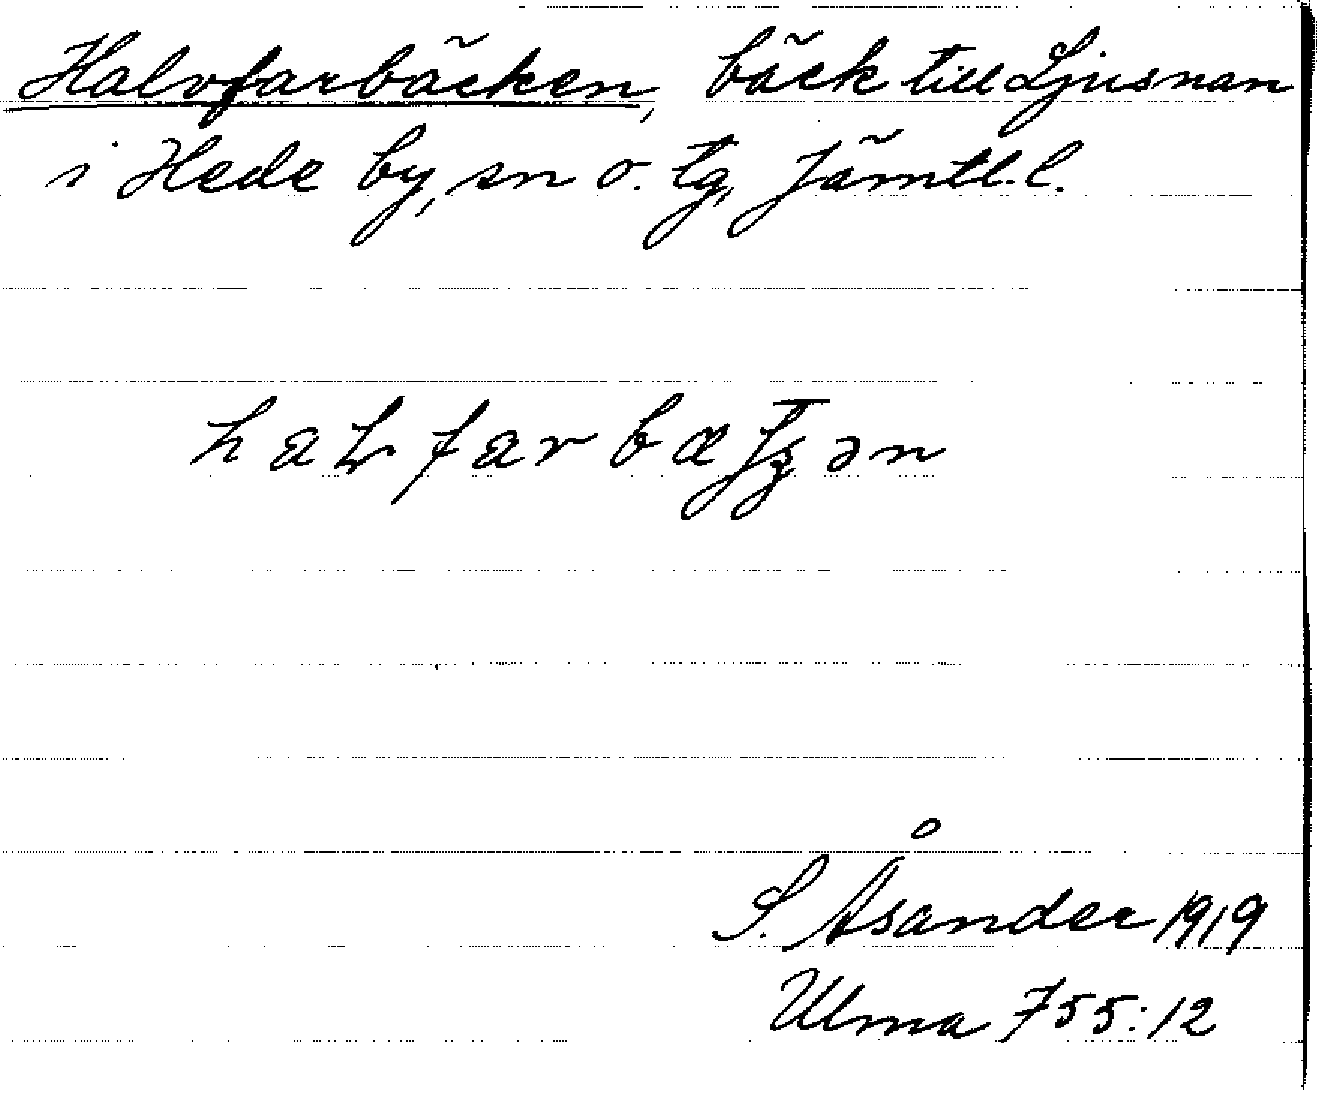 Halvfarbäcken, bäck till Ljusnan
i Hede by, sn o. tg, Jämtl. l.
S. Åsander 1919
Ulma 755:12